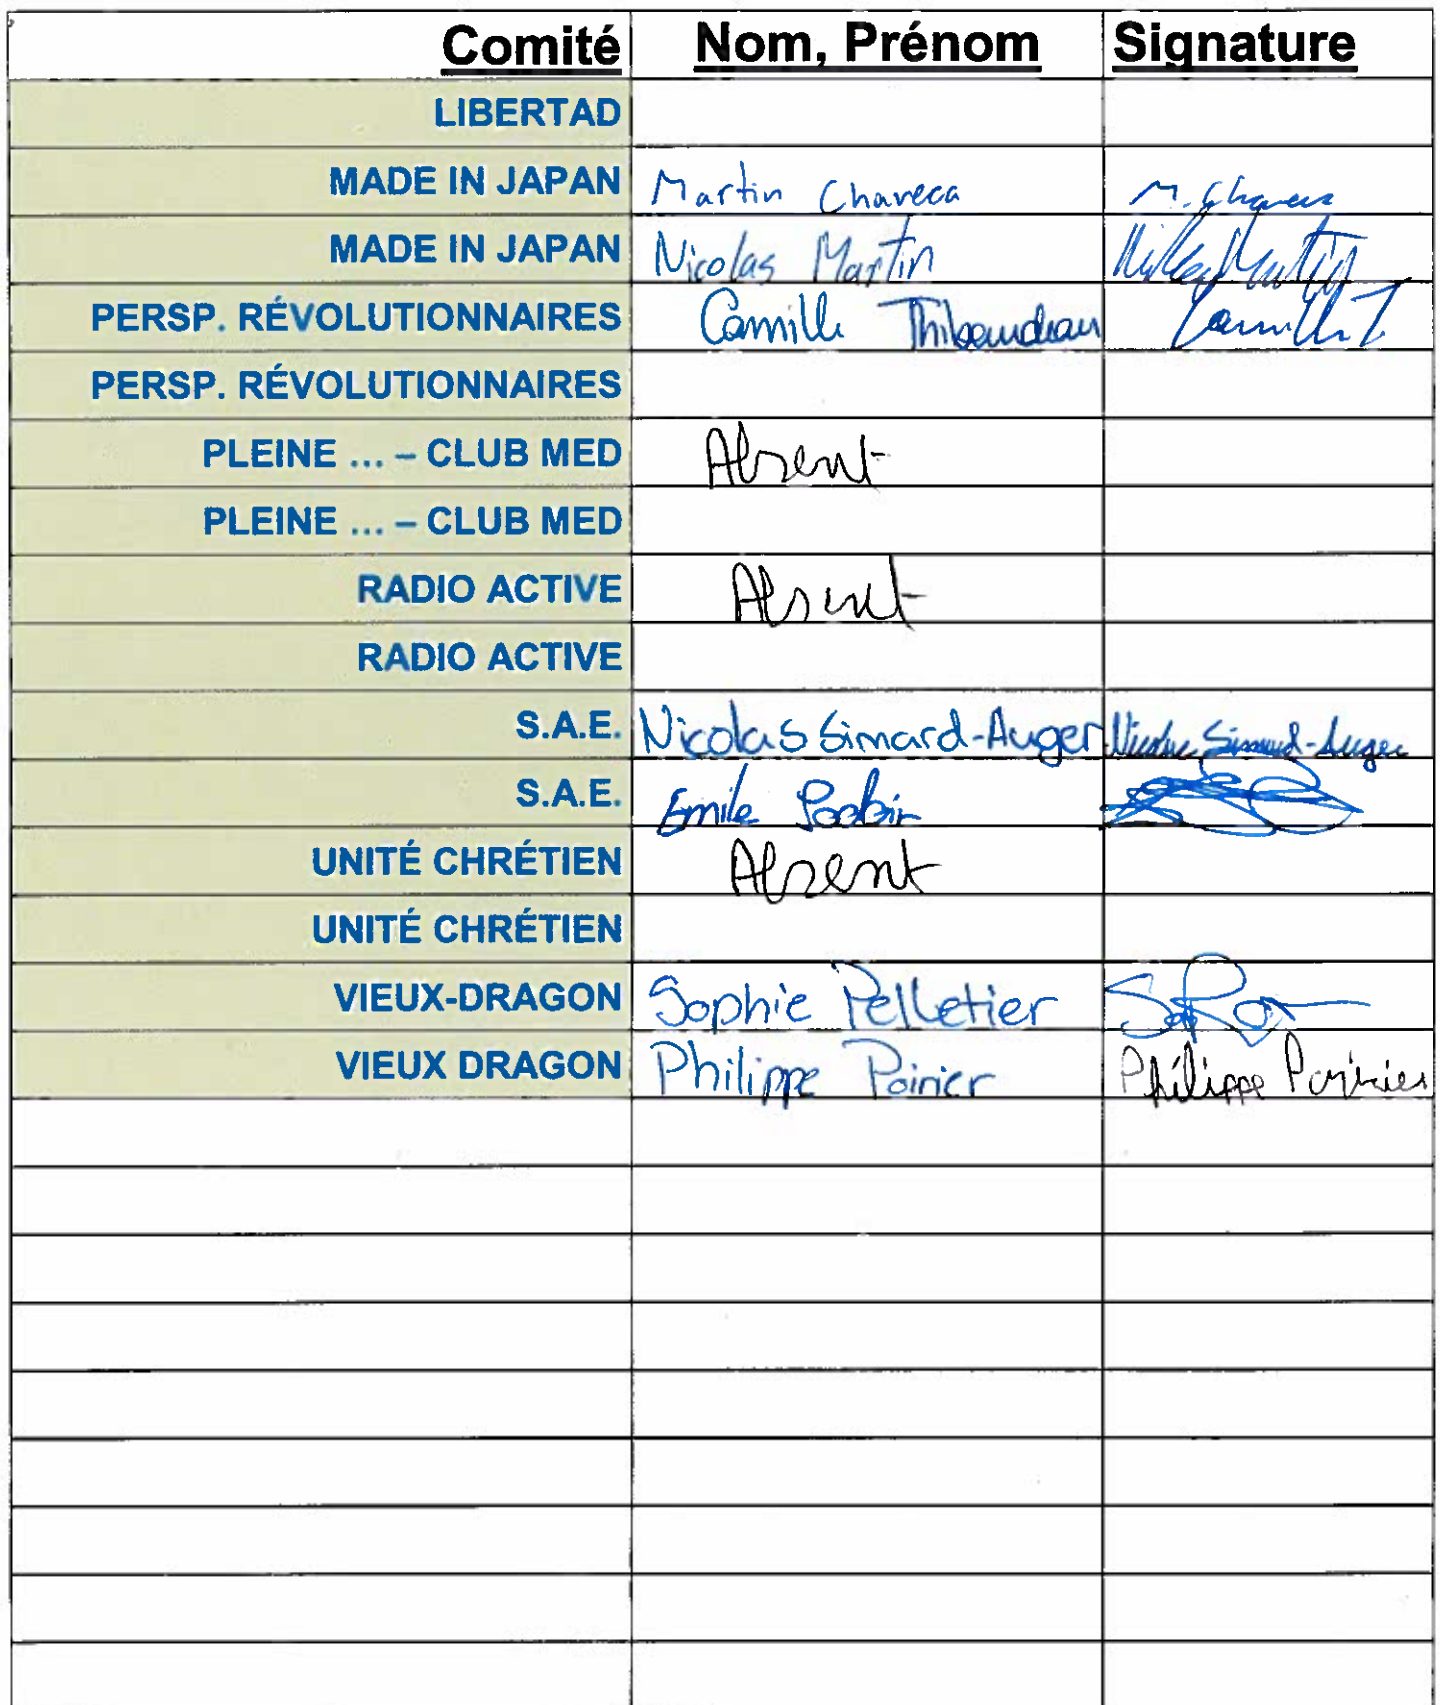 Comité Nom, Prénom Signature
LIBERTAD
MADE IN JAPAN Martin Chaveca M. Chaveca
MADE IN JAPAN Nicolas Martin Nicolas Martin
PERSP. RÉVOLUTIONNAIRES Camille Thibaudeau Camille T.
PERSP. RÉVOLUTIONNAIRES
PLEINE ... – CLUB MED Absent
PLEINE ... – CLUB MED
RADIO ACTIVE Absent
RADIO ACTIVE
S.A.E. Nicolas Simard-Auger Nicolas Simard-Auger
S.A.E. Emile
UNITÉ CHRÉTIEN Absent
UNITÉ CHRÉTIEN
VIEUX-DRAGON Sophie Pelletier
VIEUX DRAGON Philippe Poirier Philippe Poirier